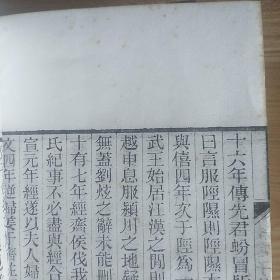 十六年傳先君蚡冒
曰言服陘隰則陘隰
與僖四年次于陘爲
武王始居江漢之間
越申息服潁川之地
無蓋劉炫之辭未能
十有七年經齊侯伐我
氏紀事不必盡與經合
宣元年經遂以夫人婦
文四年逆婦姜